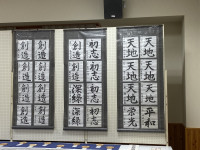 創造 創造
創造 創造
創造 創造
創造 創造
創造 初志
創造 初志
深緑 初志
深緑 初志
天地 天地
天地 天地
天地 天地
栄光 平和